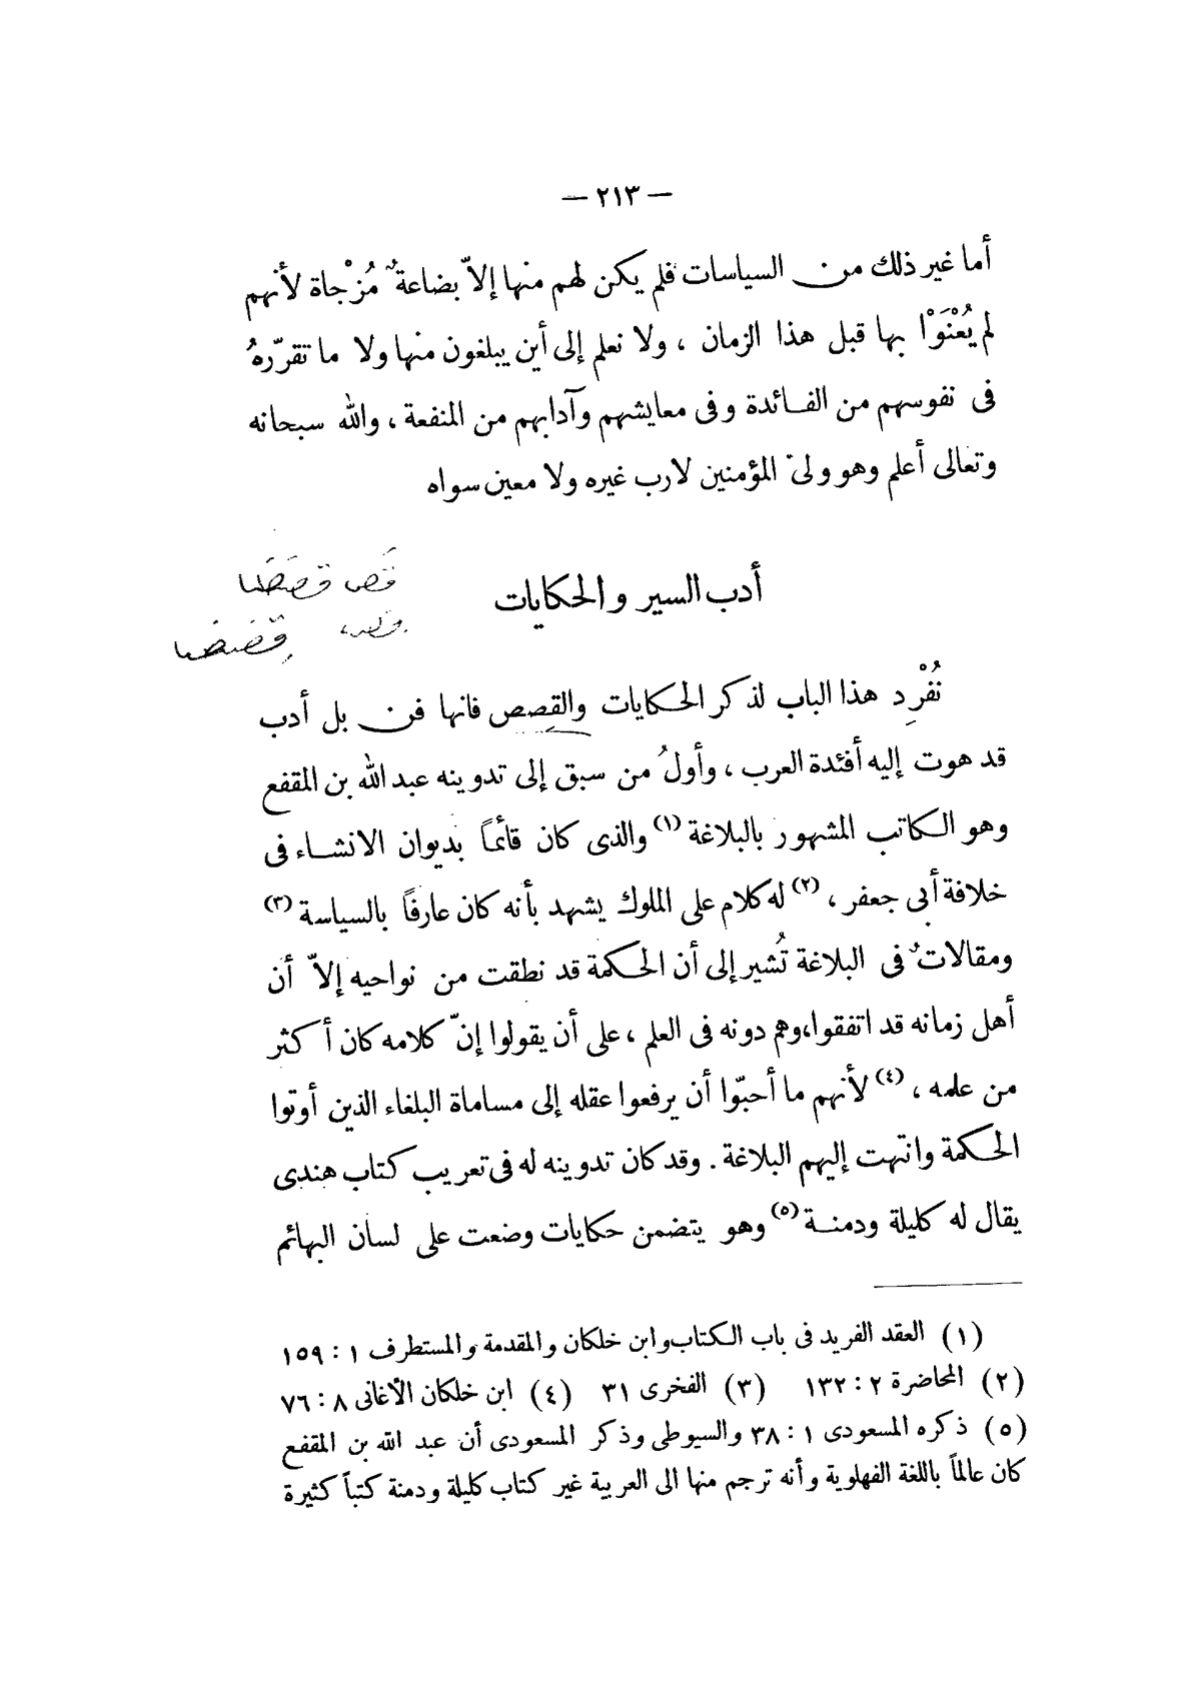 — ٢١٣ —
أما غير ذلك من السياسات فلم يكن لهم منها إلاّ بضاعةٌ مُزْجاة لأنهم
لم يُعْنَوْا بها قبل هذا الزمان ، ولا نعلم إلى أين يبلغون منها ولا ما تقرّرهُ
فى نفوسهم من الفــائدة وفى معايشهم وآدابهم من المنفعة ، والله سبحانه
وتعالى أعلم وهو ولىّ المؤمنين لا رب غيره ولا معين سواه
قَص قصصًا
قصصا
أدب السير والحكايات
نُفْرِد هذا الباب لذكر الحكايات والقصص فانها فن بل أدب
قد هوت إليه أفئدة العرب ، وأولُ من سبق إلى تدوينه عبد الله بن المقفع
وهو الكاتب المشهور بالبلاغة (١) والذى كان قائماً بديوان الانشــاء فى
خلافة أبى جعفر ، (٢) له كلام على الملوك يشهد بأنه كان عارفاً بالسياسة (٣)
ومقالاتٌ فى البلاغة تُشير إلى أن الحكمة قد نطقت من نواحيه إلاّ أن
أهل زمانه قد اتفقوا، وهم دونه فى العلم ، على أن يقولوا إنّ كلامه كان أكثر
من علمه ، (٤) لأنهم ما أحبّوا أن يرفعوا عقله إلى مساماة البلغاء الذين أوتوا
الحكمة وانتهت إليهم البلاغة . وقد كان تدوينه له فى تعريب كتاب هندى
يقال له كليلة ودمنــة (٥) وهو يتضمن حكايات وضعت على لسان البهائم
(١) العقد الفريد فى باب الكتاب وابن خلكان والمقدمة والمستطرف ١ : ١٥٩
(٢) المحاضرة ٢ : ١٣٢ (٣) الفخرى ٣١ (٤) ابن خلكان الأغانى ٨ : ٧٦
(٥) ذكره المسعودى ١ : ٣٨ والسيوطى وذكر المسعودى أن عبد الله بن المقفع
كان عالماً باللغة الفهلوية وأنه ترجم منها الى العربية غير كتاب كليلة ودمنة كتباً كثيرة